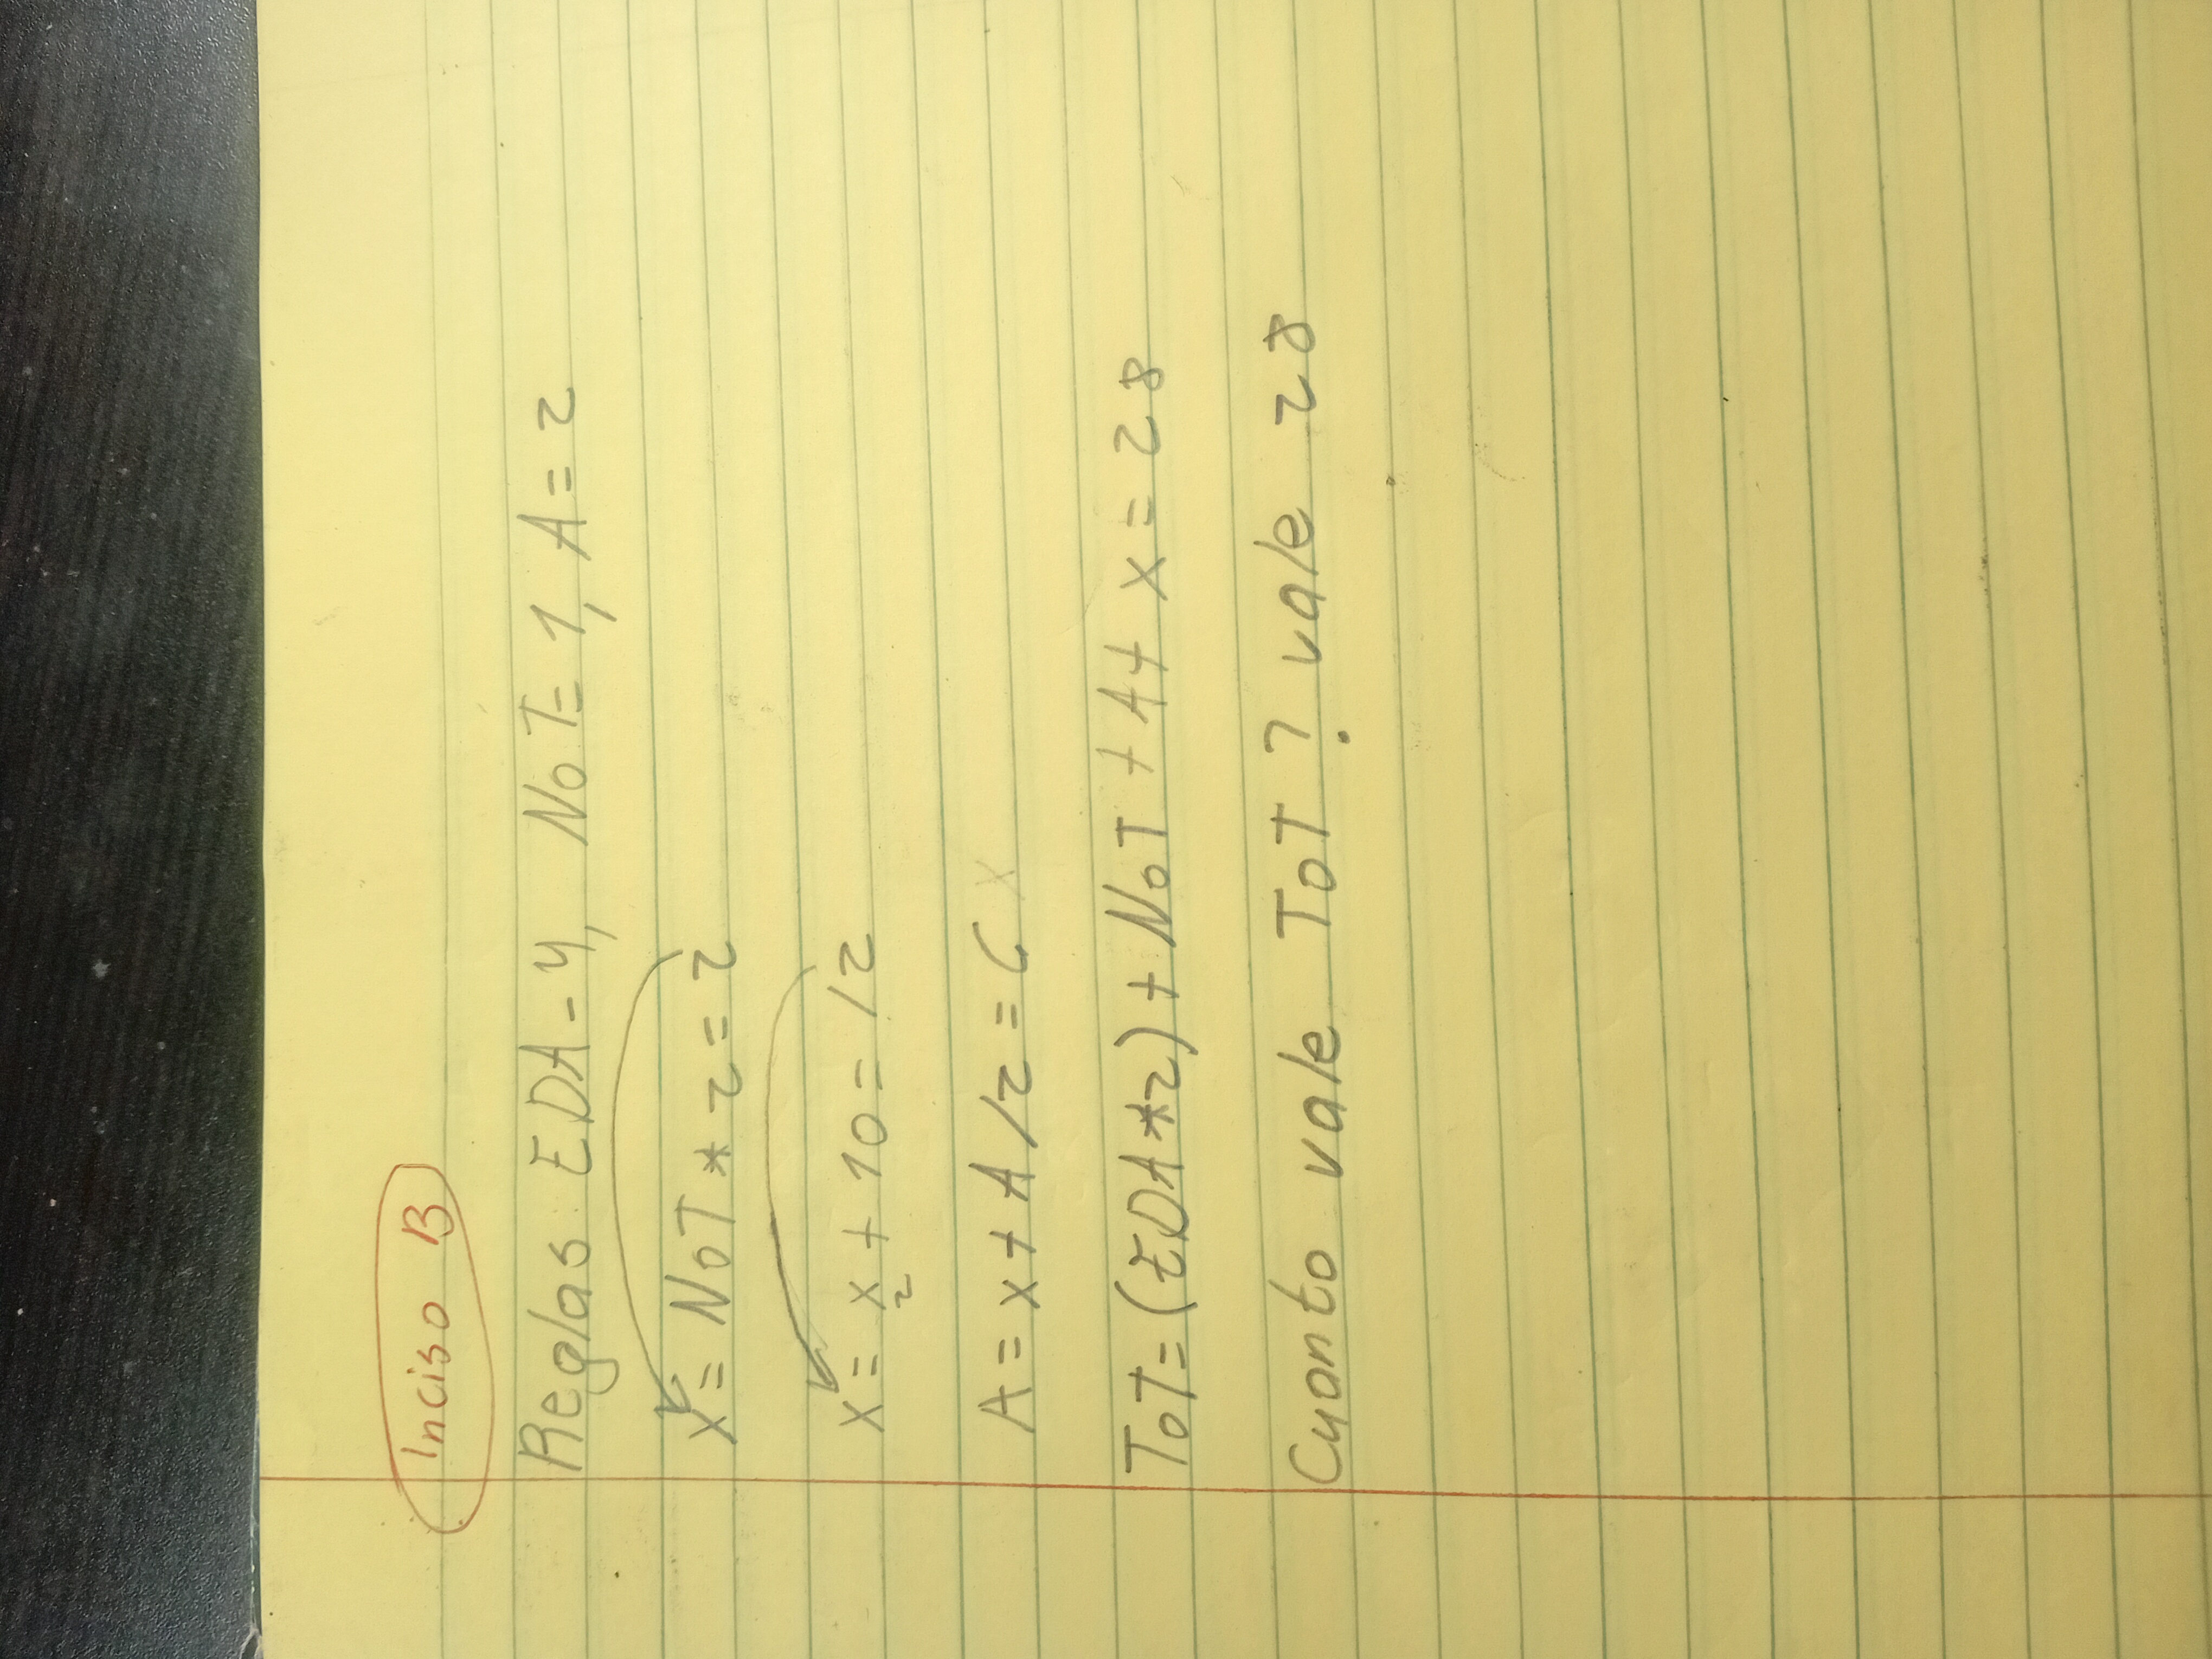 Inciso B
Reglas EDA-4, NoT=1, A=2
x=NoT*2=2
x=x+10=12
2
A=x+A/2=6 x
ToT=(EDA*2)+NoT+A+x=28
Cuanto vale ToT? vale 28